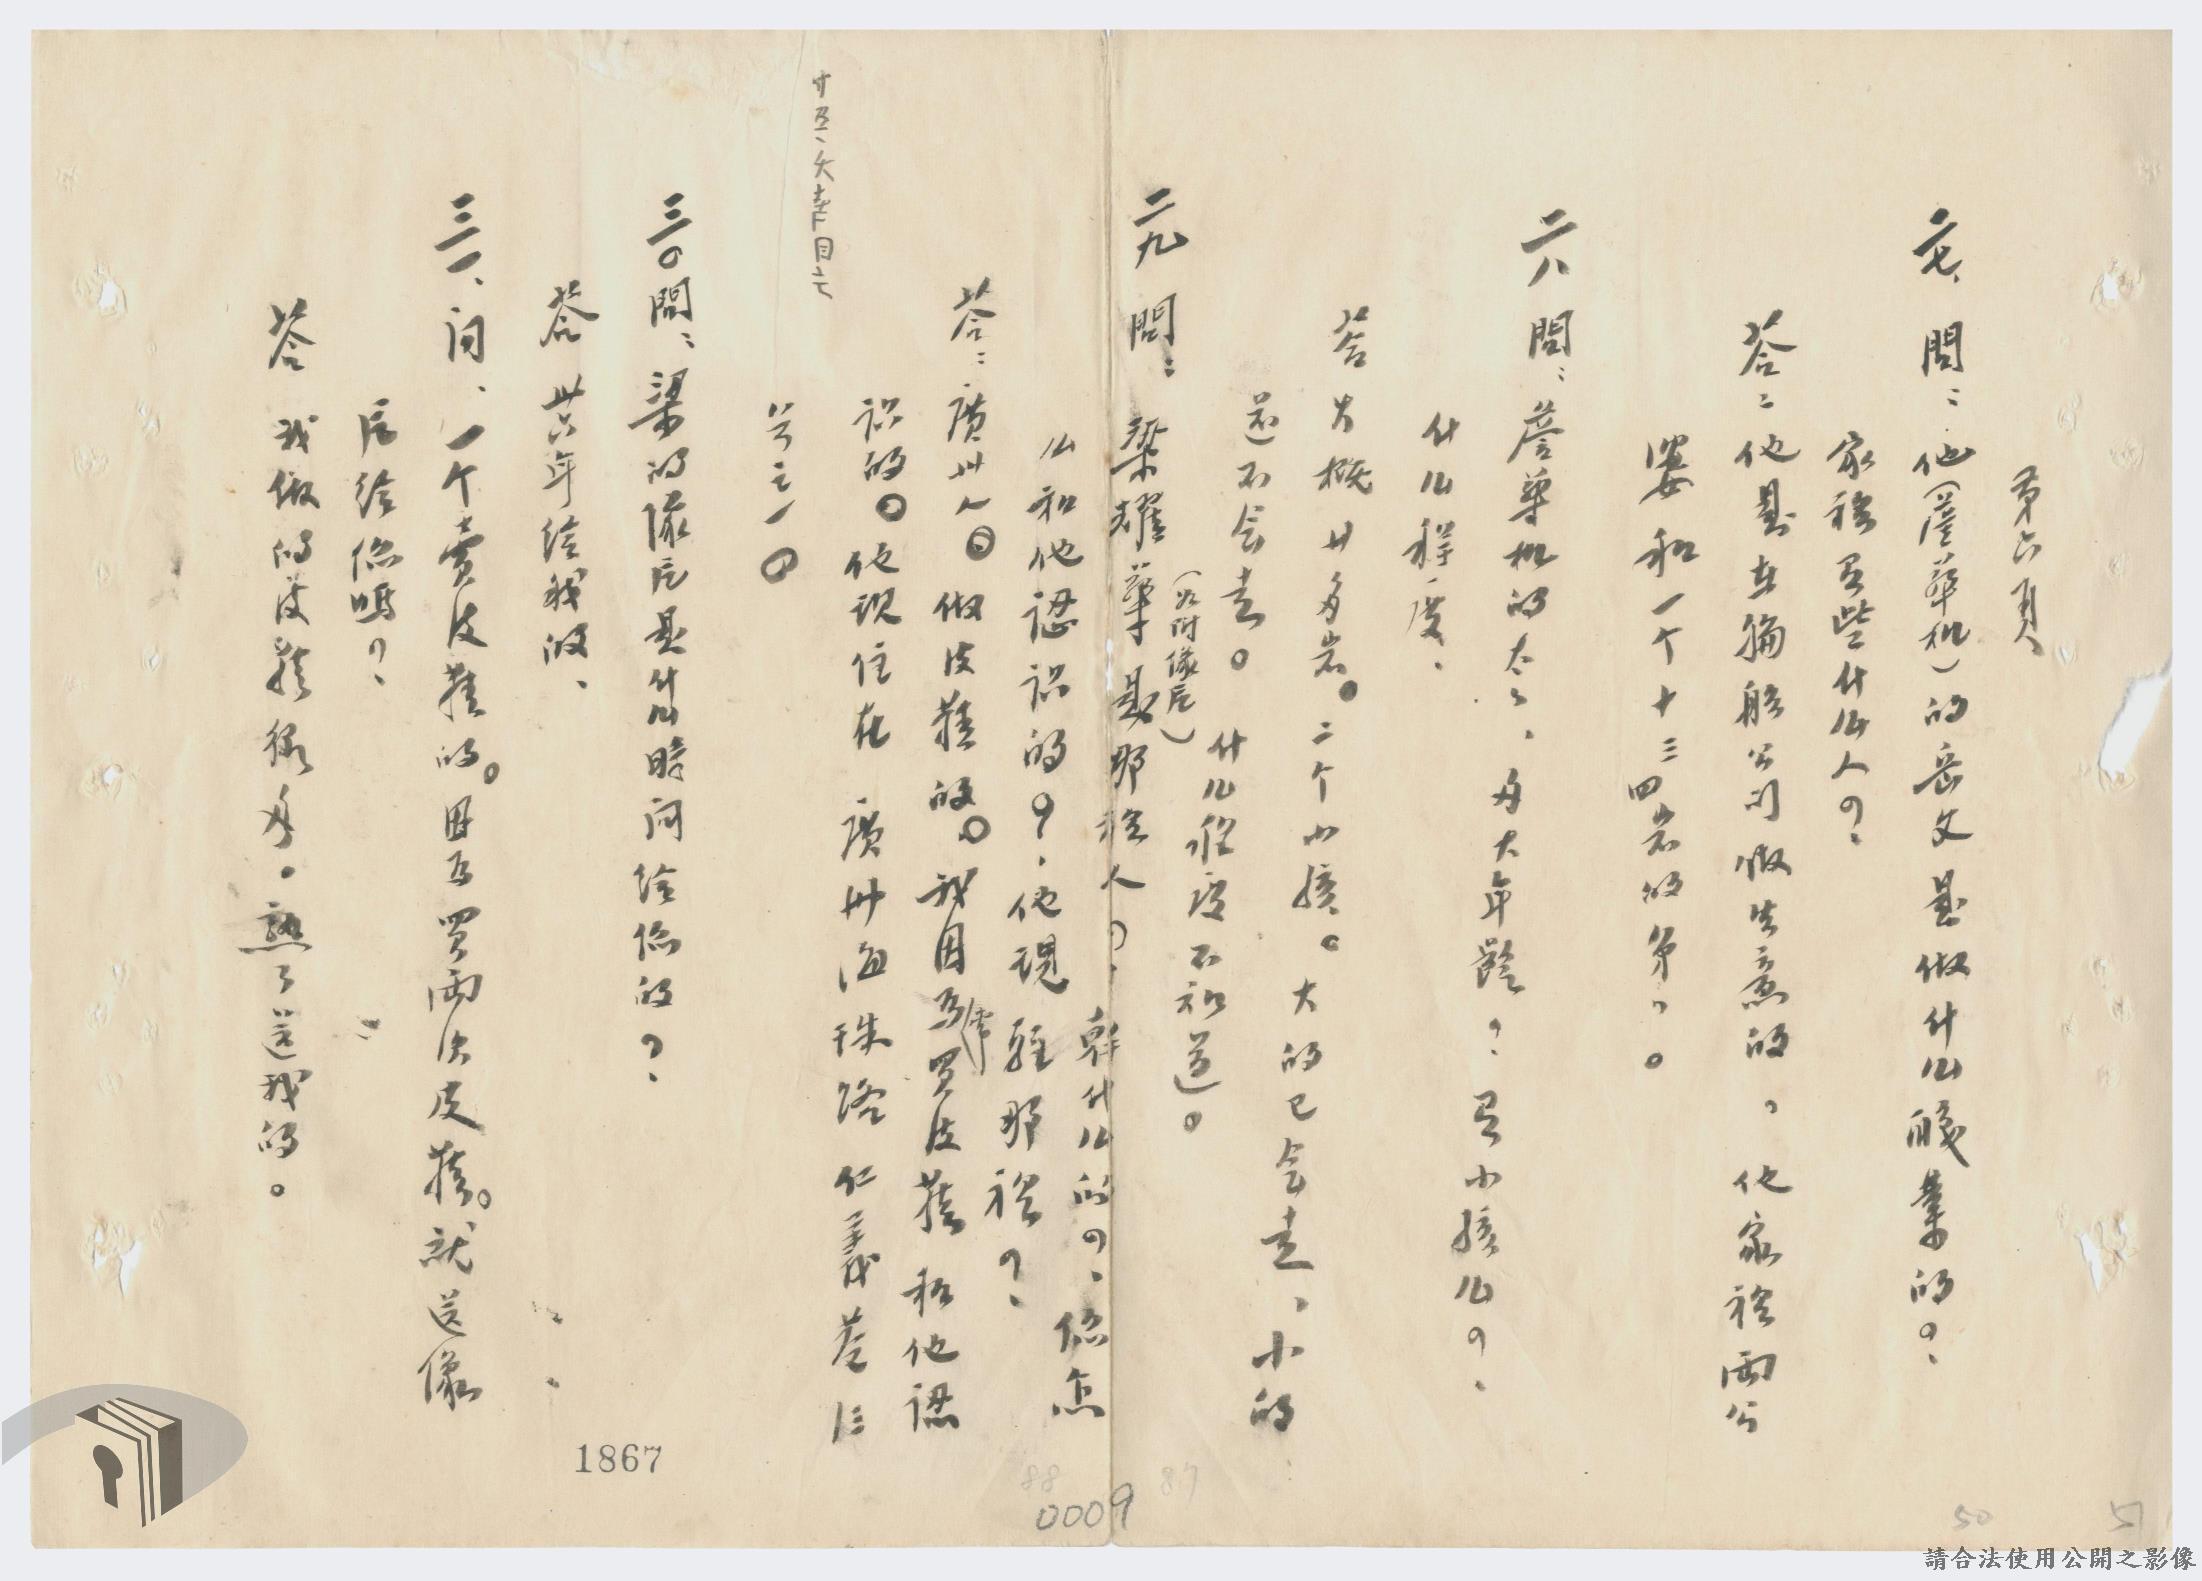 第六頁
二七、問：他（詹華機）的岳丈是做什么職業的？、
家裡有些什么人？、
答：他是在輪船公司做生意的，，他家裡兩公
婆和一个十三四岁的弟，。
二八 問：詹華机的太々，多大年齡？有小孩么？、
什么程度、
答 大概廿多岁。二个小孩。大的已会走、小的
还不会走。什么程度不知道。
（如附像片）
二九 問：梁耀華是那裡人？、幹什么的？、你怎
么和他認识的？、他現駐那裡？、
答：广州人。做皮鞋的。我因为常買皮鞋和他認
识的。他現住在 广州海珠路仁義巷
号之一。
三〇問：梁的像片是什么時间给你的？、
答 卅六年给我的、
三一、问、一个賣皮鞋的。因为買两次皮鞋。就送像
片给你嗎？、
答 我做的皮鞋很多。熟了送我的。
1867
0009
88
87
50
51
請合法使用公開之影像